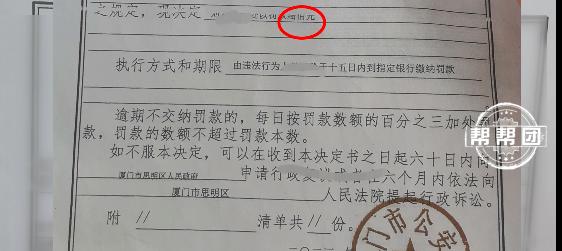 之规定，现决定
处以罚款陆佰元
执行方式和期限 由违法行为人 于十五日内到指定银行缴纳罚款
逾期不交纳罚款的，每日按罚款数额的百分之三加处罚
款，罚款的数额不超过罚款本数。
如不服本决定，可以在收到本决定书之日起六十日内向
厦门市思明区人民政府 申请行政复议或者在六个月内依法向
厦门市思明区 人民法院提起行政诉讼。
附 // 清单共 // 份。
门市公安
帮帮团